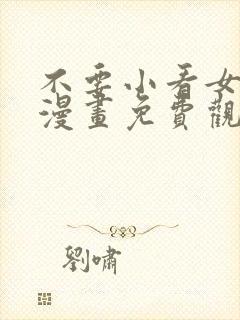 不要小看女
漫畫免費觀
劉嘯